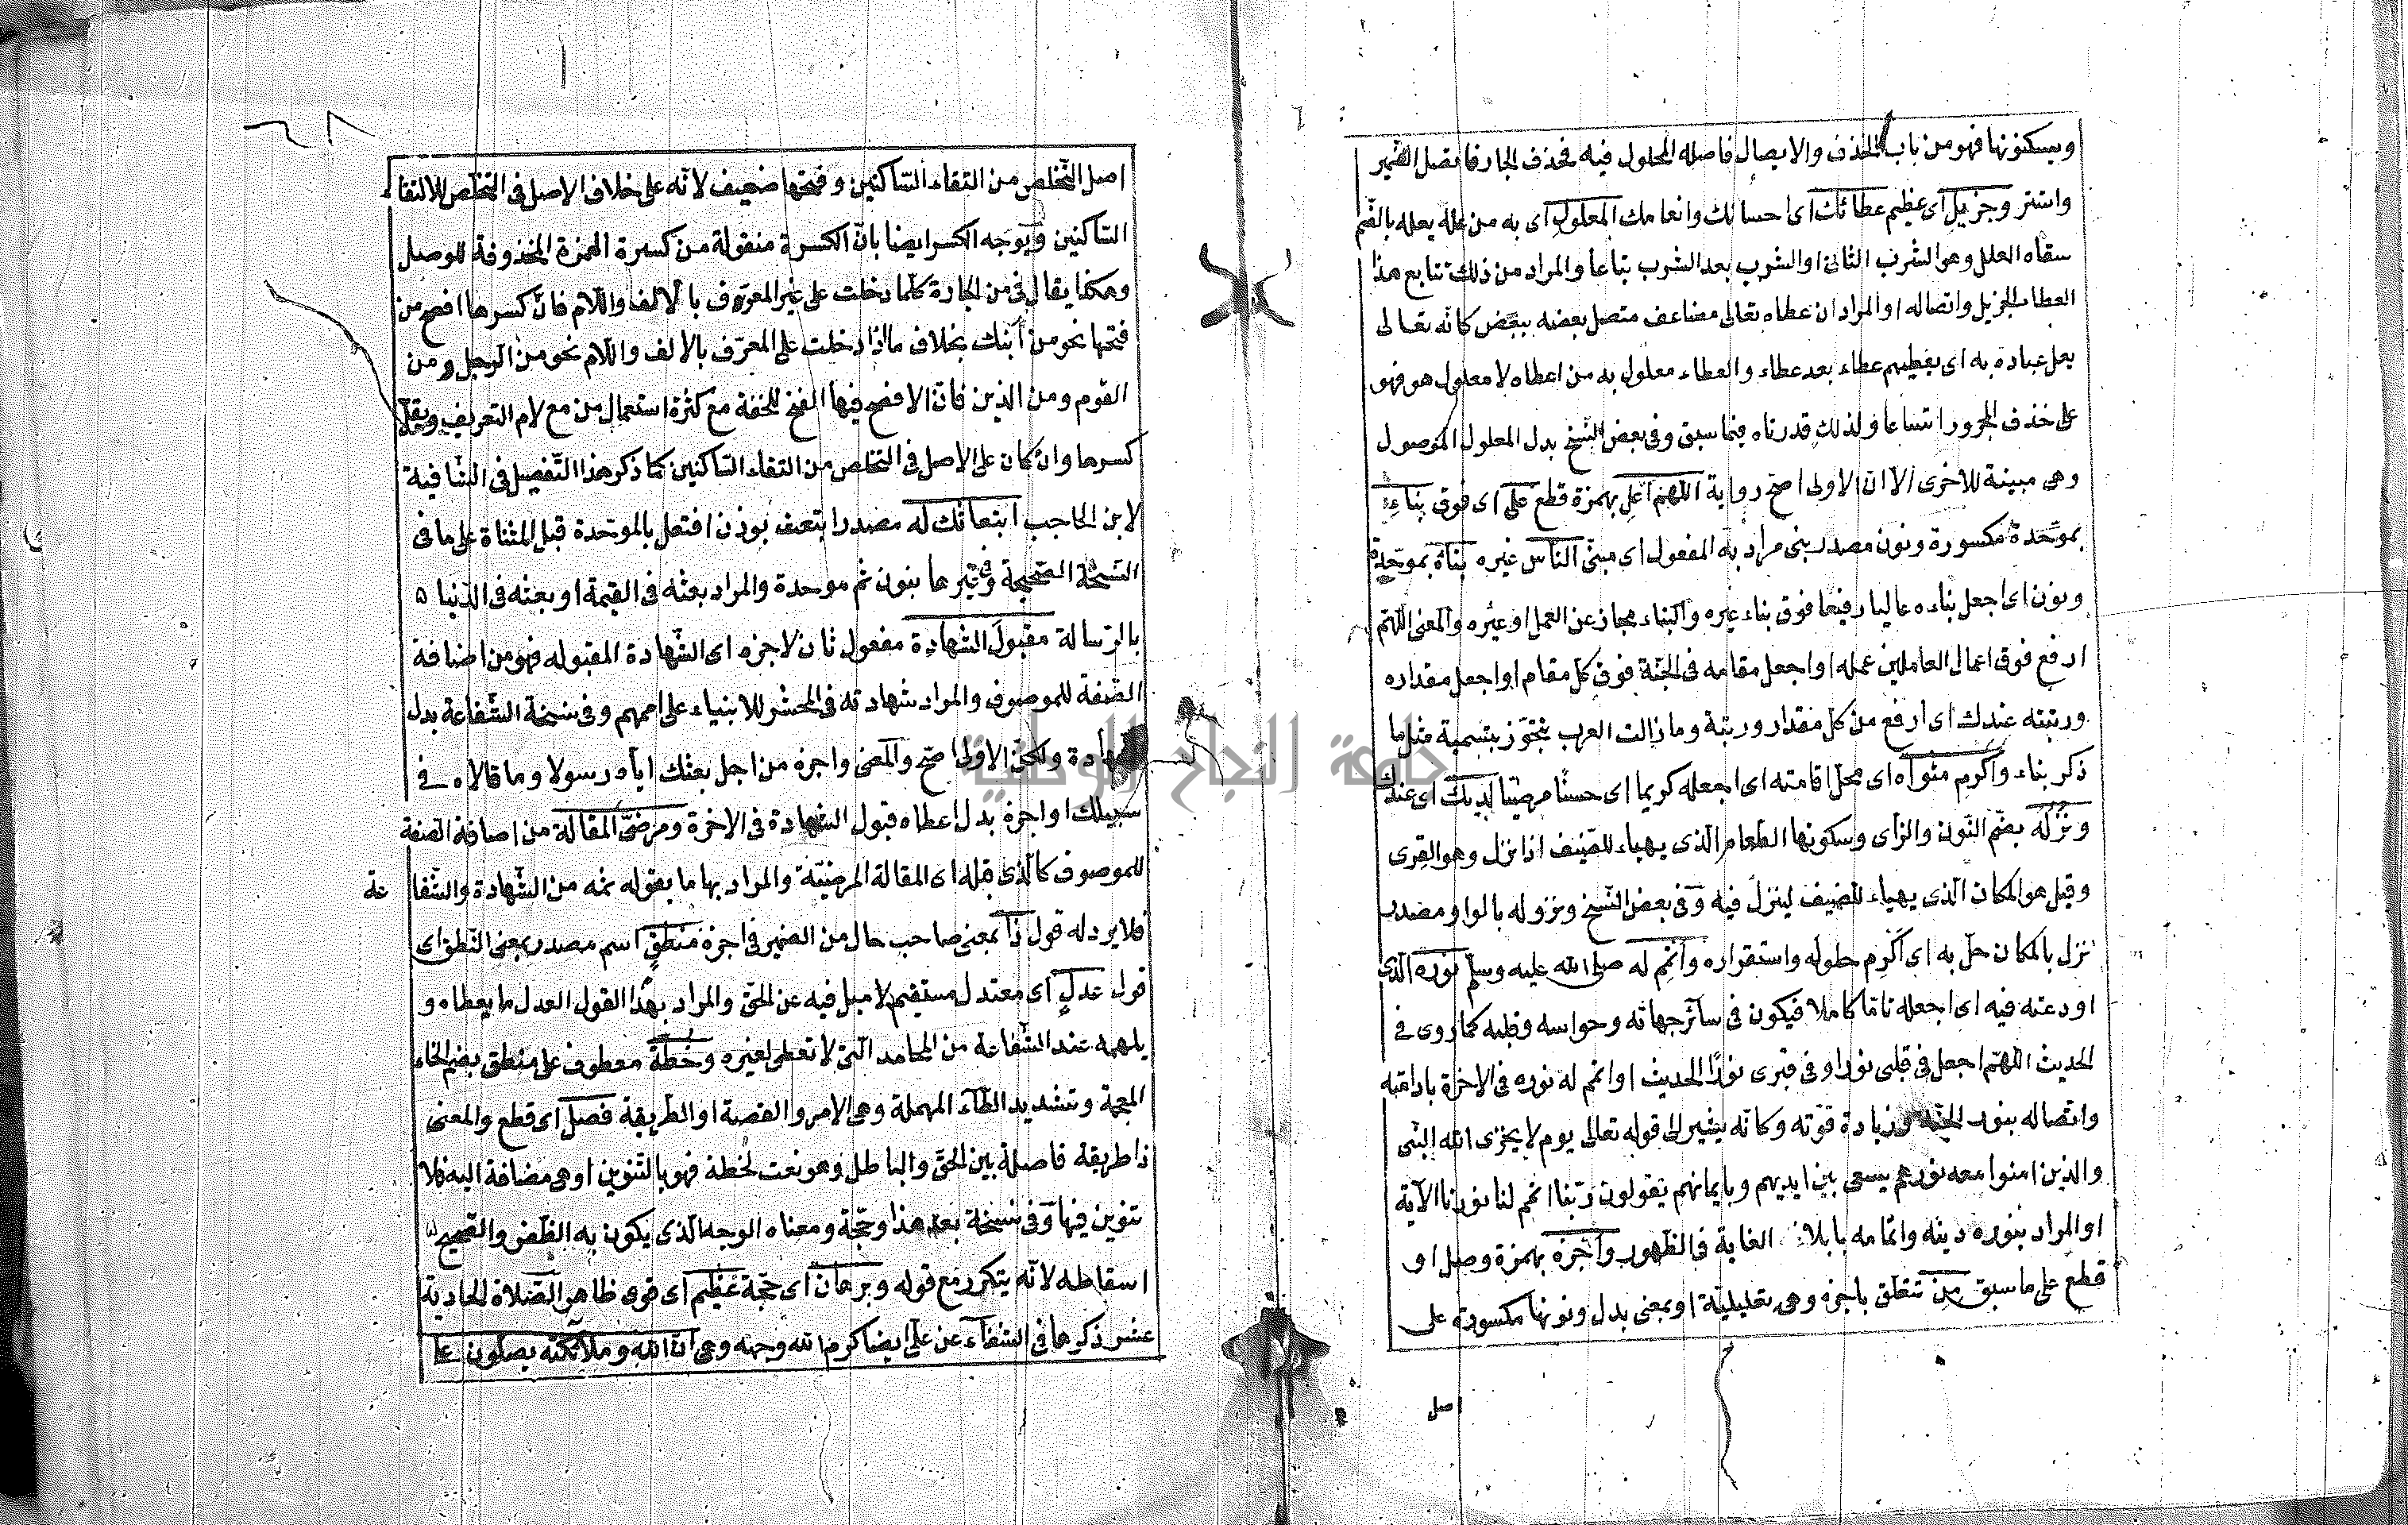 ويسكنونها فهو من باب الحذف والايصال فاصله المحلول فيه فحذف الجار فاتصل الضمير
واستتر وجزيل اى عظيم عطائك اى احسانك وانعامك المعلول اى به من عله يعله بالضم
سقاه العلل وهو الشرب الثانى او الشرب بعد الشرب تباعا والمراد من ذلك تتابع هذا
العطاء الجزيل واتصاله او المراد ان عطاه تعالى مضاعف متصل بعضه ببعض كانه تعالى
يعل عباده به اى يعطيهم عطاء بعد عطاء والعطاء معلول به من اعطاه لا معلول هو فهو
على حذف المجرور اتساعا ولذلك قدرناه فيما سبق وفى بعض النسخ بدل المعلول الموصول
وهى مبينة للاخرى الا ان الاولى اصح رواية اللهم اعل بهمزة قطع على اى فوق بناء
بموحدة مكسورة ونون مصدر بنى مراد به المفعول اى مبنى الناس غيره بناه بموحدة
ونون اى اجعل بناءه عاليا رفيعا فوق بناء غيره والبناء مجاز عن العمل او غيره والمعنى اللهم
ارفع فوق اعمال العاملين عمله او اجعل مقامه فى الجنة فوق كل مقام او اجعل مقداره
ورتبته عندك اى ارفع من كل مقدار ورتبة وما زالت العرب تتجوز بتسمية مثل ما
ذكر بناء واكرم مثواه اى محل اقامته اى اجعله كريما اى حسنا مرضيا لديك اى عندك
ونزله بضم النون والزاى وسكونها الطعام الذى يهياء للضيف اذا نزل وهو القرى
وقيل هو المكان الذى يهياء للضيف لينزل فيه وفى بعض النسخ ونزوله بالواو مصدر
نزل بالمكان حل به اى اكرم حلوله واستقراره واتمم له صلى الله عليه وسلم نوره الذى
اودعته فيه اى اجعله تاما كاملا فيكون فى سائر جهاته وحواسه وقلبه كما روى فى
الحديث اللهم اجعل فى قلبى نورا وفى قبرى نورا الحديث او اتمم له نوره فى الاخرة بادامته
واتصاله بنور الجنة وزيادة قوته وكانه يشير الى قوله تعالى يوم لا يخزى الله النبى
والذين امنوا معه نورهم يسعى بين ايديهم وبايمانهم يقولون ربنا اتمم لنا نورنا الاية
او المراد بنوره دينه واتمامه بابلاغه الغاية فى الظهور واجزه بهمزة وصل او
قطع على ما سبق من تتعلق باجزه وهى تعليلية او بمعنى بدل ونونها مكسورة على
اصل
اصل التخلص من التقاء الساكنين وفتحها ضعيف لانه على خلاف الاصل فى التخلص للالتقاء
الساكنين ويوجه الكسر ايضا بان الكسرة منقولة من كسرة الهمزة المحذوفة للوصل
وهكذا يقال فى من الجارة كلما دخلت على غير المعرف بالالف واللام فان كسرها افصح من
فتحها نحو من ابنك بخلاف ما اذا دخلت على المعرف بالالف واللام نحو من الرجل ومن
القوم ومن الذين فان الافصح فيها الفتح للخفة مع كثرة استعمال من مع لام التعريف ويقل
كسرها وان كان على الاصل فى التخلص من التقاء الساكنين كما ذكر هذا التفصيل فى الشافية
لابن الحاجب ابتعاثك له مصدر ابتعث بوزن افتعل بالموحدة قبل المثناة على ما فى
النسخة الصحيحة وفى غيرها بنون ثم موحدة والمراد بعثه فى القيمة او بعثه فى الدنيا
بالرسالة مقبول الشهادة مفعول ثان لاجزه اى الشهادة المقبوله فهو من اضافة
الصفة للموصوف والمراد شهادته فى المحشر للانبياء على اممهم وفى نسخة الشفاعة بدل
الشهادة ولكن الاولى اصح والمعنى واجزه من اجل بعثك اياه رسولا وما قالاه فى
سبيلك او اجزه بدل اعطاه قبول الشهادة فى الاخرة ومرضى المقالة من اضافة الصفة
للموصوف كالذى قبله اى المقالة المرضية والمراد بها ما يقوله ثمه من الشهادة والشفا عة
فلا يرد له قول ذا بمعنى صاحب حال من الضمير فى اجزه منطق اسم مصدر بمعنى النطق اى
قول عدل اى معتدل مستقيم لا ميل فيه عن الحق والمراد بهذا القول العدل ما يعطاه و
يلهمه عند الشفاعة من المحامد التى لا تعطى لغيره وخطة معطوف على منطق بضم الخاء
المعجمة وتشديد الطاء المهملة وهى الامر والقصة او الطريقة فصل اى قطع والمعنى
ذا طريقة فاصلة بين الحق والباطل وهو نعت لخطة فهو بالتنوين او هى مضافة اليه فلا
تنوين فيها وفى نسخة بعد هذا وحجة ومعناه الوجه الذى يكون به الظفر والصحيح
اسقاطه لانه يتكرر مع قوله وبرهان اى حجة عظيم اى قوى ظاهر الصلاة الحادية
عشر ذكرها فى الشفاء عن على ايضا كرم الله وجهه وهى ان الله وملائكته يصلون على
جامعة النجاح الوطنية